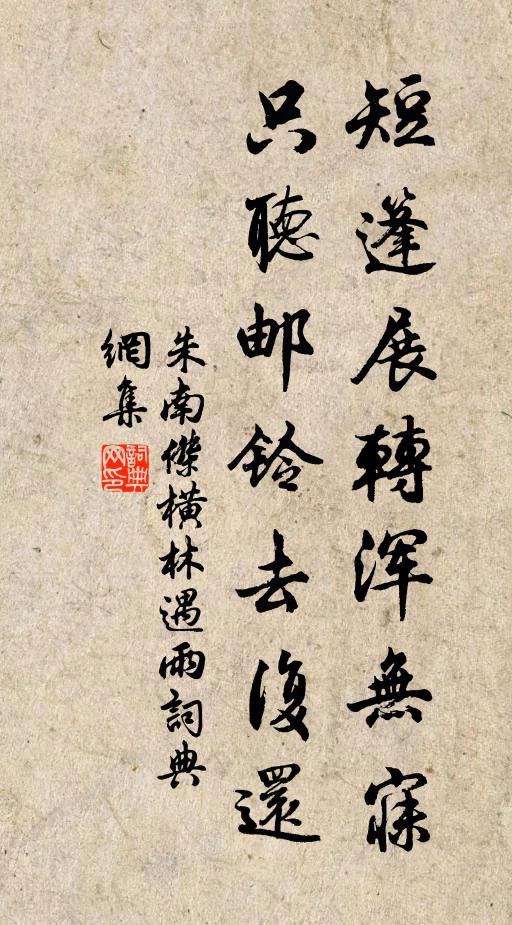 短蓬展轉浑無寐
只聽邮鈴去復還
朱南傑橫林遇雨詞典
網集
詞典
网印